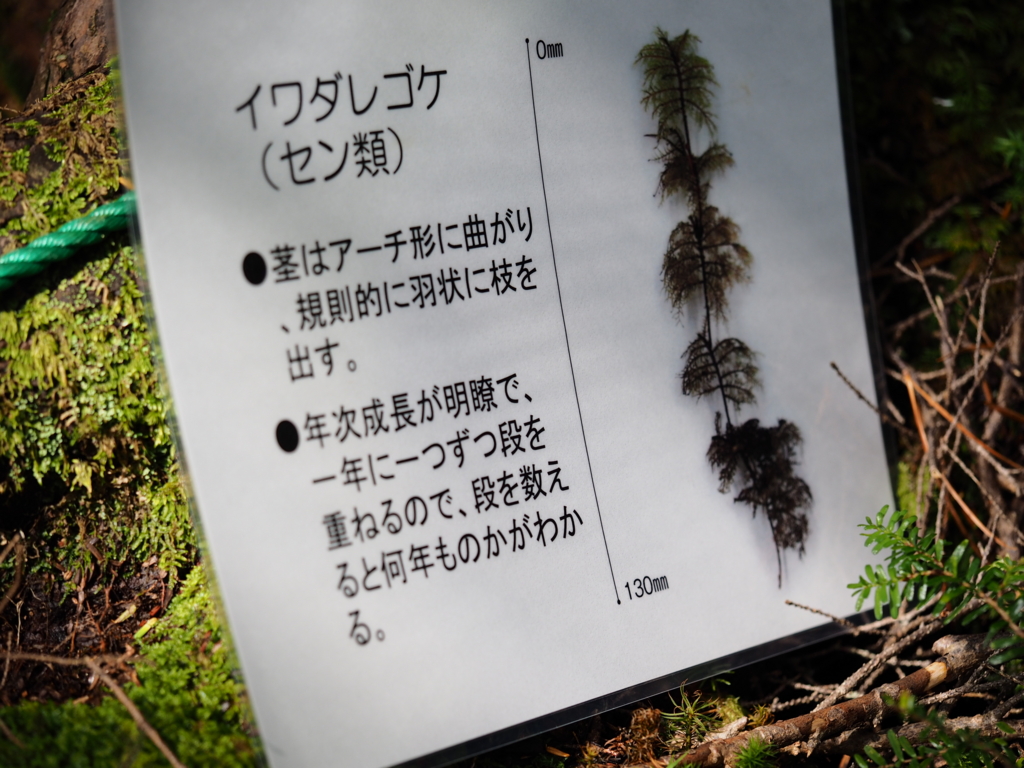 イワダレゴケ
（セン類）
●茎はアーチ形に曲がり
、規則的に羽状に枝を
出す。
●年次成長が明瞭で、
一年に一つずつ段を
重ねるので、段を数え
ると何年ものかがわか
る。
0㎜
130㎜